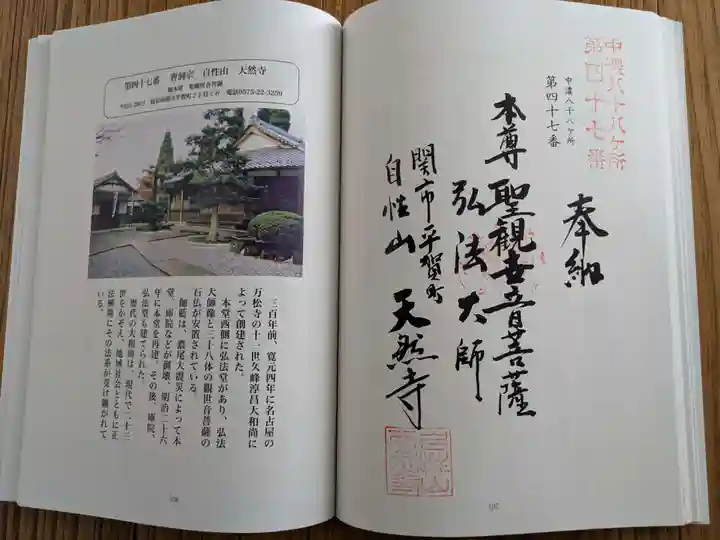 中濃八十八ケ所
第四十七番
中濃八十八ヶ所
第四十七番
奉納
本尊 聖観世音菩薩
弘法大師
関市平賀町
自性山 天然寺
107
第四十七番 曹洞宗 自性山 天然寺
電話0575-22-3259
三百年前、寛元四年に名古屋の
万松寺の十一世久峰淳昌大和尚に
よって創建された。
本堂西側に弘法堂があり、弘法
大師像と三十八体の観世音菩薩の
石仏が安置されている。
伽藍は、濃尾大震災によって本
堂、庫院などが倒壊、明治二十六
年に本堂を再建。その後、庫院、
弘法堂も建てられた。
歴代の大和尚は、現代で二十三
世をかぞえ、地域社会とともに正
法禅陽にその法系が受け継がれて
いる。